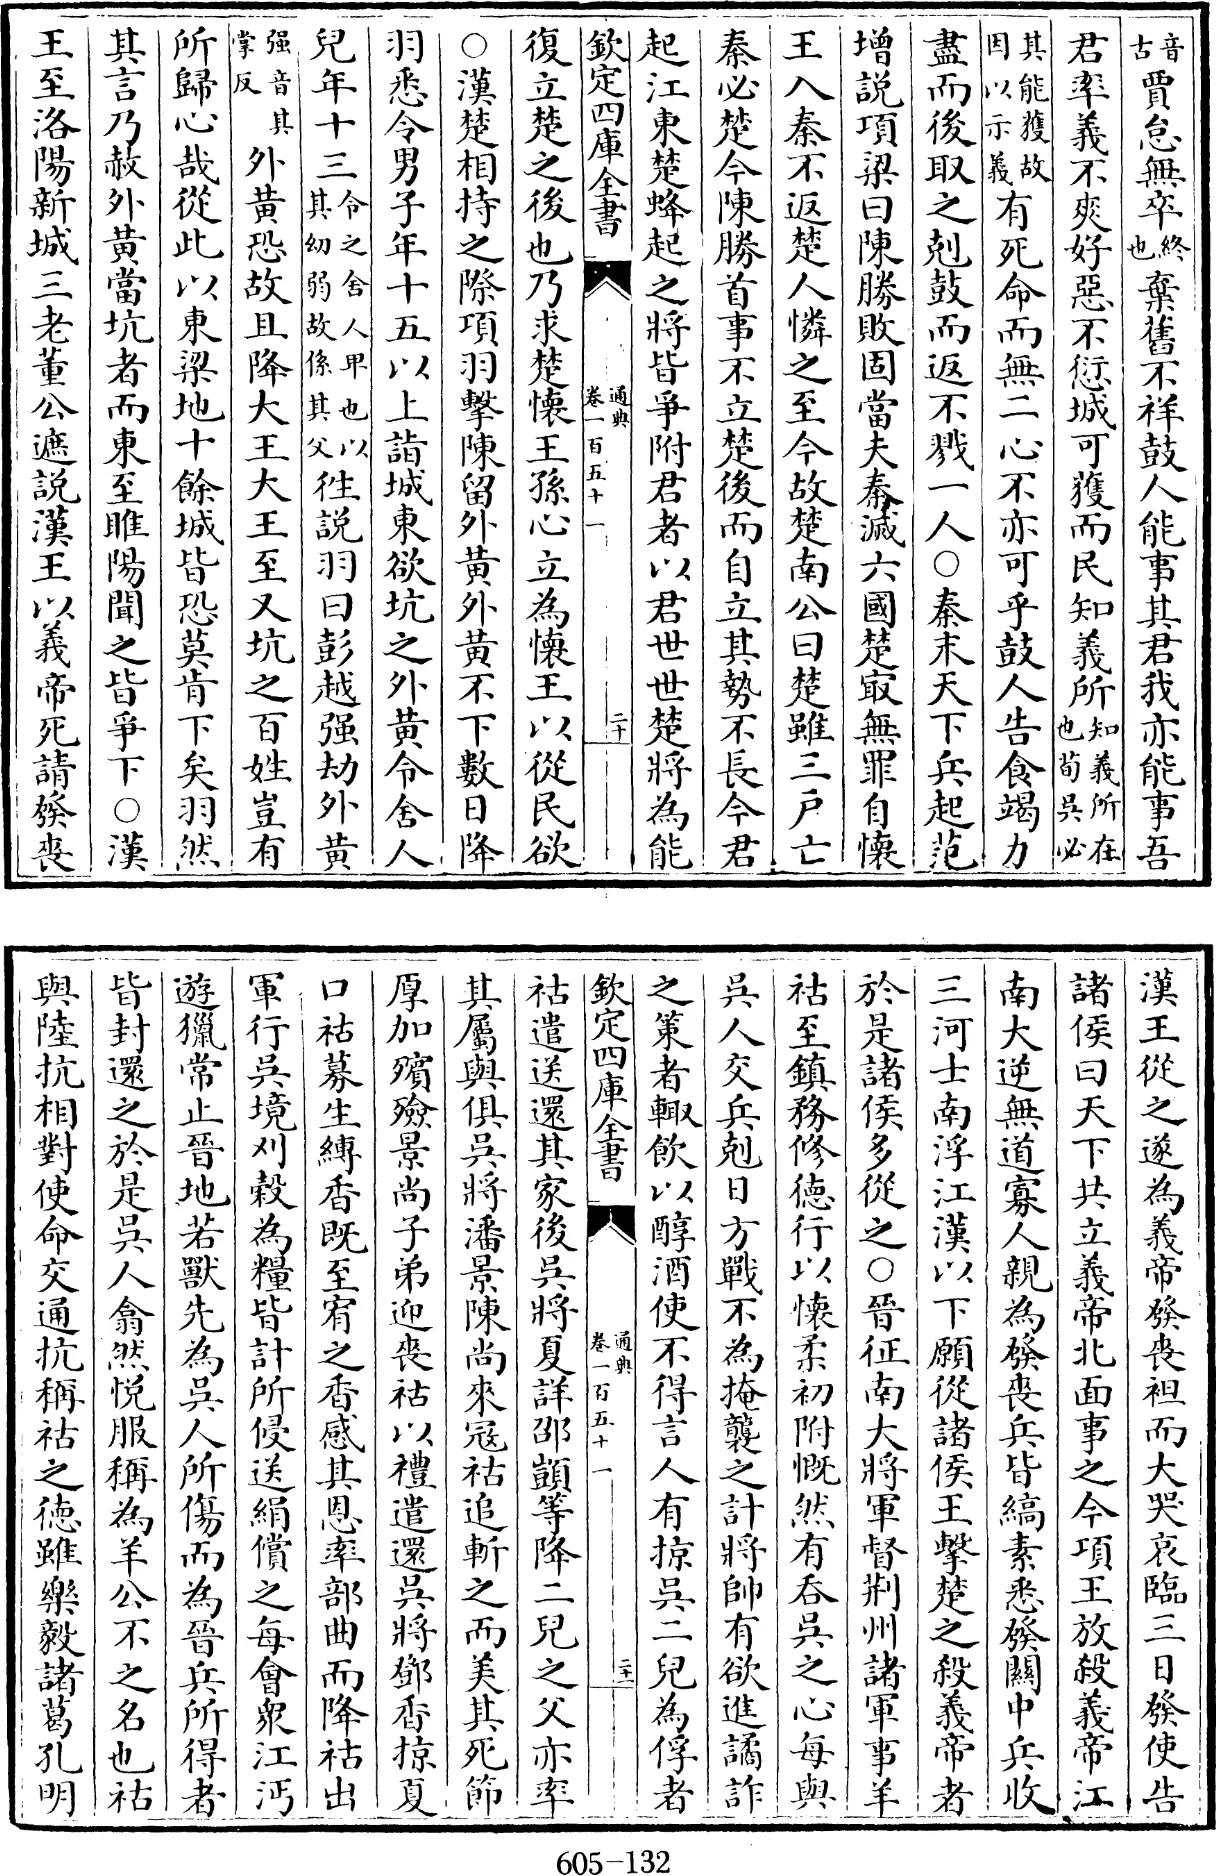 音古賈怠無卒終也棄舊不祥鼓人能事其君我亦能事吾
君率義不爽好惡不愆城可獲而民知義所知義所在也荀吳必
其能獲故因以示義有死命而無二心不亦可乎鼓人告食竭力
盡而後取之剋鼓而返不戮一人○秦末天下兵起范
增説項梁曰陳勝敗固當夫秦滅六國楚㝡無罪自懷
王入秦不返楚人憐之至今故楚南公曰楚雖三户亡
秦必楚今陳勝首事不立楚後而自立其勢不長今君
起江東楚蜂起之將皆爭附君者以君世世楚將為能
欽定四庫全書
通典
卷一百五十一
二十
復立楚之後也乃求楚懷王孫心立為懷王以從民欲
○漢楚相持之際項羽擊陳留外黄外黄不下數日降
羽悉令男子年十五以上詣城東欲坑之外黄令舍人
兒年十三令之舍人卑也以其幼弱故係其父往説羽曰彭越强劫外黄
强音其掌反外黄恐故且降大王大王至又坑之百姓豈有
所歸心哉從此以東梁地十餘城皆恐莫肯下矣羽然
其言乃赦外黄當坑者而東至睢陽聞之皆爭下○漢
王至洛陽新城三老董公遮説漢王以義帝死請發喪
漢王從之遂為義帝發喪袒而大哭哀臨三日發使告
諸侯曰天下共立義帝北面事之今項王放殺義帝江
南大逆無道寡人親為發喪兵皆縞素悉發關中兵收
三河士南浮江漢以下願從諸侯王擊楚之殺義帝者
於是諸侯多從之○晉征南大將軍督荆州諸軍事羊
祜至鎮務修德行以懷柔初附慨然有吞吳之心每與
吳人交兵剋日方戰不為掩襲之計將帥有欲進譎詐
之策者輙飲以醇酒使不得言人有掠吳二兒為俘者
欽定四庫全書
通典
卷一百五十一
二十一
祜遣送還其家後吳將夏詳邵顗等降二兒之父亦率
其屬與俱吳將潘景陳尚來寇祜追斬之而美其死節
厚加殯殮景尚子弟迎喪祜以禮遣還吳將鄧香掠夏
口祜募生縛香既至宥之香感其恩率部曲而降祜出
軍行吳境刈榖為糧皆計所侵送絹償之每會衆江沔
遊獵常止晉地若獸先為吳人所傷而為晉兵所得者
皆封還之於是吳人翕然悦服稱為羊公不之名也祜
與陸抗相對使命交通抗稱祜之德雖樂毅諸葛孔明
605-132